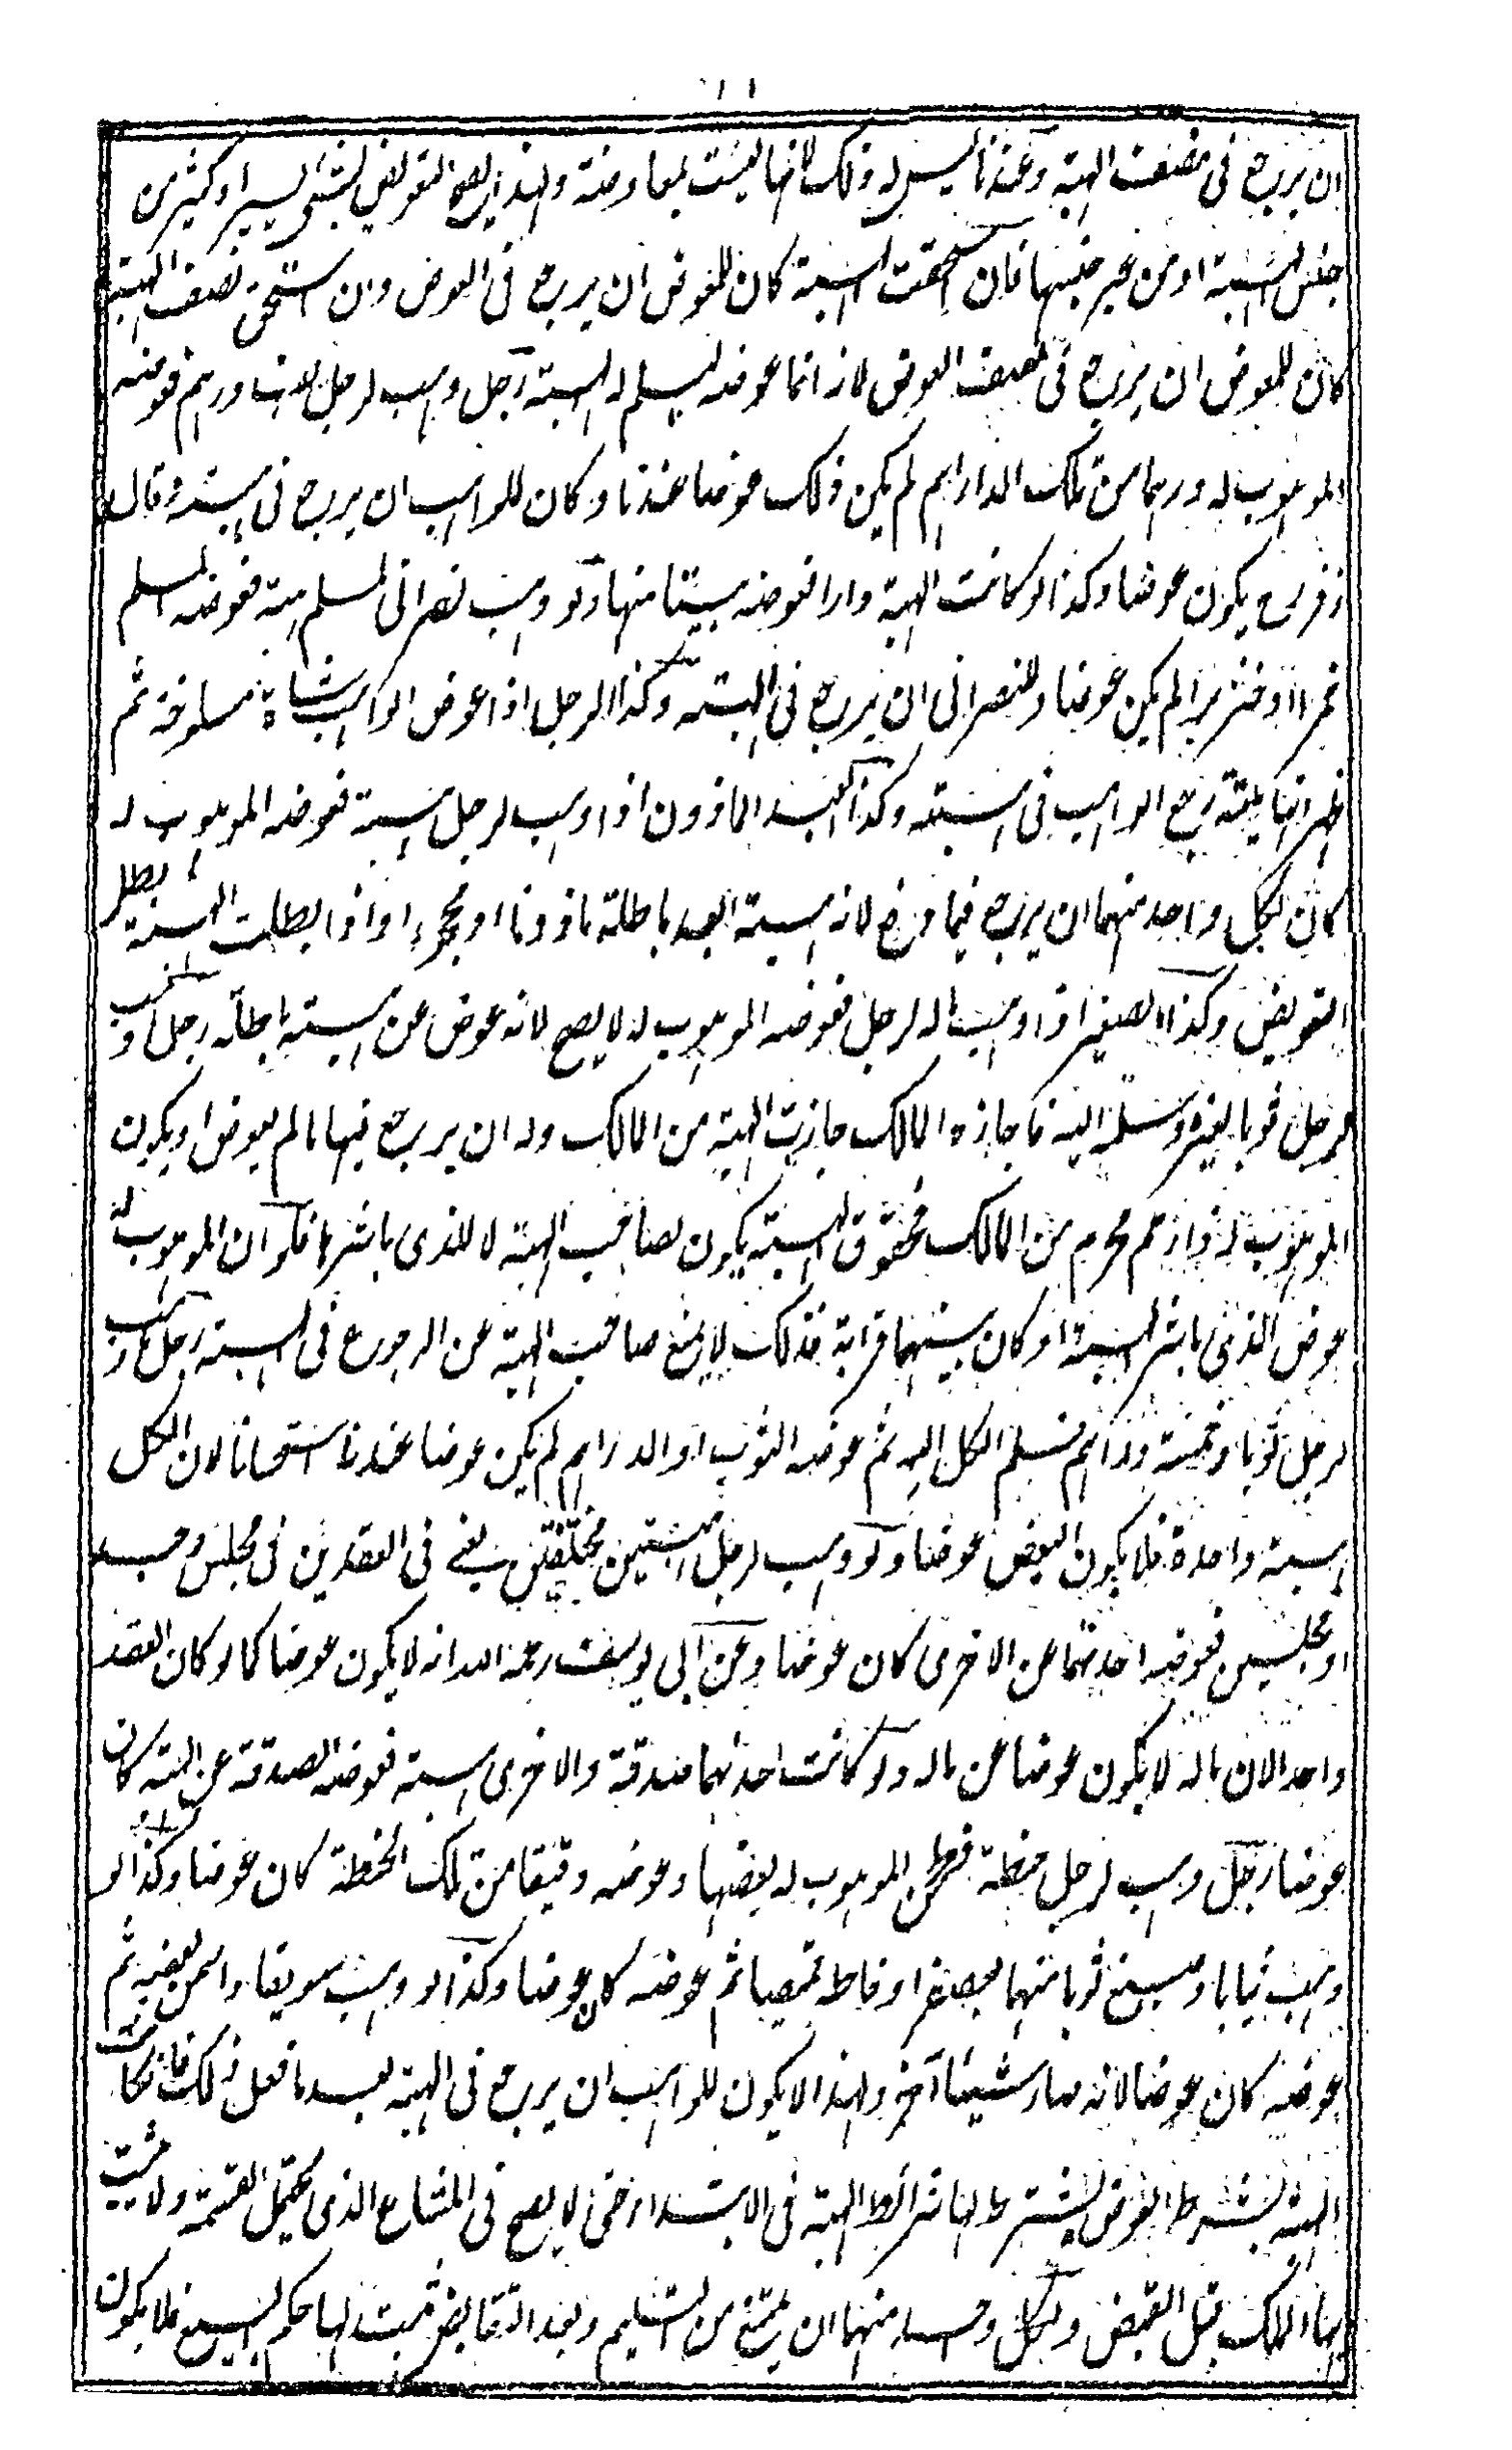 ان يرجع فى نصف الهبة وعندنا ليس له ذلك لانها ليست بمعاوضة ولهذا يصح التعويض بشئ يسير او كثير من
جنس الهبة او من غير جنسها فان استحقت الهبة كان للمعوض ان يرجع فى العوض وان استحق نصف الهبة
كان للمعوض ان يرجع فى نصف العوض لانه انما عوضه ليسلم له الهبة رجل وهب لرجل الف درهم فعوضه
الموهوب له درهما من تلك الدراهم لم يكن ذلك عوضا عندنا وكان للواهب ان يرجع فى هبته وقال
زفر رح يكون عوضا وكذا لو كانت الهبة دارا فعوضه بيتا منها ولو وهب نصرانى لمسلم هبة فعوضه المسلم
خمرا او خنزيرا لم يكن عوضا وللنصرانى ان يرجع فى الهبة وكذا الرجل اذا عوض الواهب شاة مسلوخة ثم
ظهر انها ميتة رجع الواهب فى هبته وكذا العبد الماذون اذا وهب لرجل هبة فعوضه الموهوب له
كان لكل واحد منهما ان يرجع فيما دفع لانه هبة العبد باطلة ماذونا او محجورا واذا بطلت الهبة بطل
التعويض وكذا الصغير اذا وهب ماله لرجل فعوضه الموهوب له لا يصح لانه عوض عن هبة باطلة رجل وهب
لرجل ثوبا لغيره وسلمه اليه فاجازه المالك جازت الهبة من المالك وله ان يرجع فيها ما لم يعوض او يكون
الموهوب له ذا رحم محرم من المالك فحقوق الهبة يكون لصاحب الهبة لا للذى باشرها فلو ان الموهوب له
عوض الذى باشر الهبة او كان بينهما قرابة فذلك لا يمنع صاحب الهبة عن الرجوع فى الهبة رجل وهب
لرجل ثوبا وخمسة دراهم فسلم الكل اليه ثم عوضه الثوب او الدراهم لم يكن عوضا عندنا استحسانا لان الكل
هبة واحدة فلا يكون البعض عوضا ولو وهب لرجل هبتين مختلفتين يعنى فى العقدين فى مجلس واحد
او مجلسين فعوضه احدهما عن الاخرى كان عوضا وعن ابى يوسف رحمه الله انه لا يكون عوضا كما لو كان العقد
واحدا لان ماله لا يكون عوضا عن ماله ولو كانت احدهما صدقة والاخرى هبة فعوضه الصدقة عن الهبة كان
عوضا رجل وهب لرجل حنطة فطحن الموهوب له بعضها وعوضه دقيقا من تلك الحنطة كان عوضا وكذا لو
وهب ثيابا وصبغ ثوبا منها بعصفر او خاطه قميصا ثم عوضه كان عوضا وكذا لو وهب سويقا والس بعضه ثم
عوضه كان عوضا لانه صار شيئا آخر ولهذا لا يكون للواهب ان يرجع فى الهبة بعد ما فعل ذلك فان كانت
الهبة بشرط العوض يشترط لها شرائط الهبة فى الابتداء حتى لا يصح فى المشاع الذى يحتمل القسمة ولا يثبت
بها الملك قبل القبض ولكل واحد منهما ان يمتنع من التسليم وبعد التقابض يثبت لها حكم البيع فلا يكون